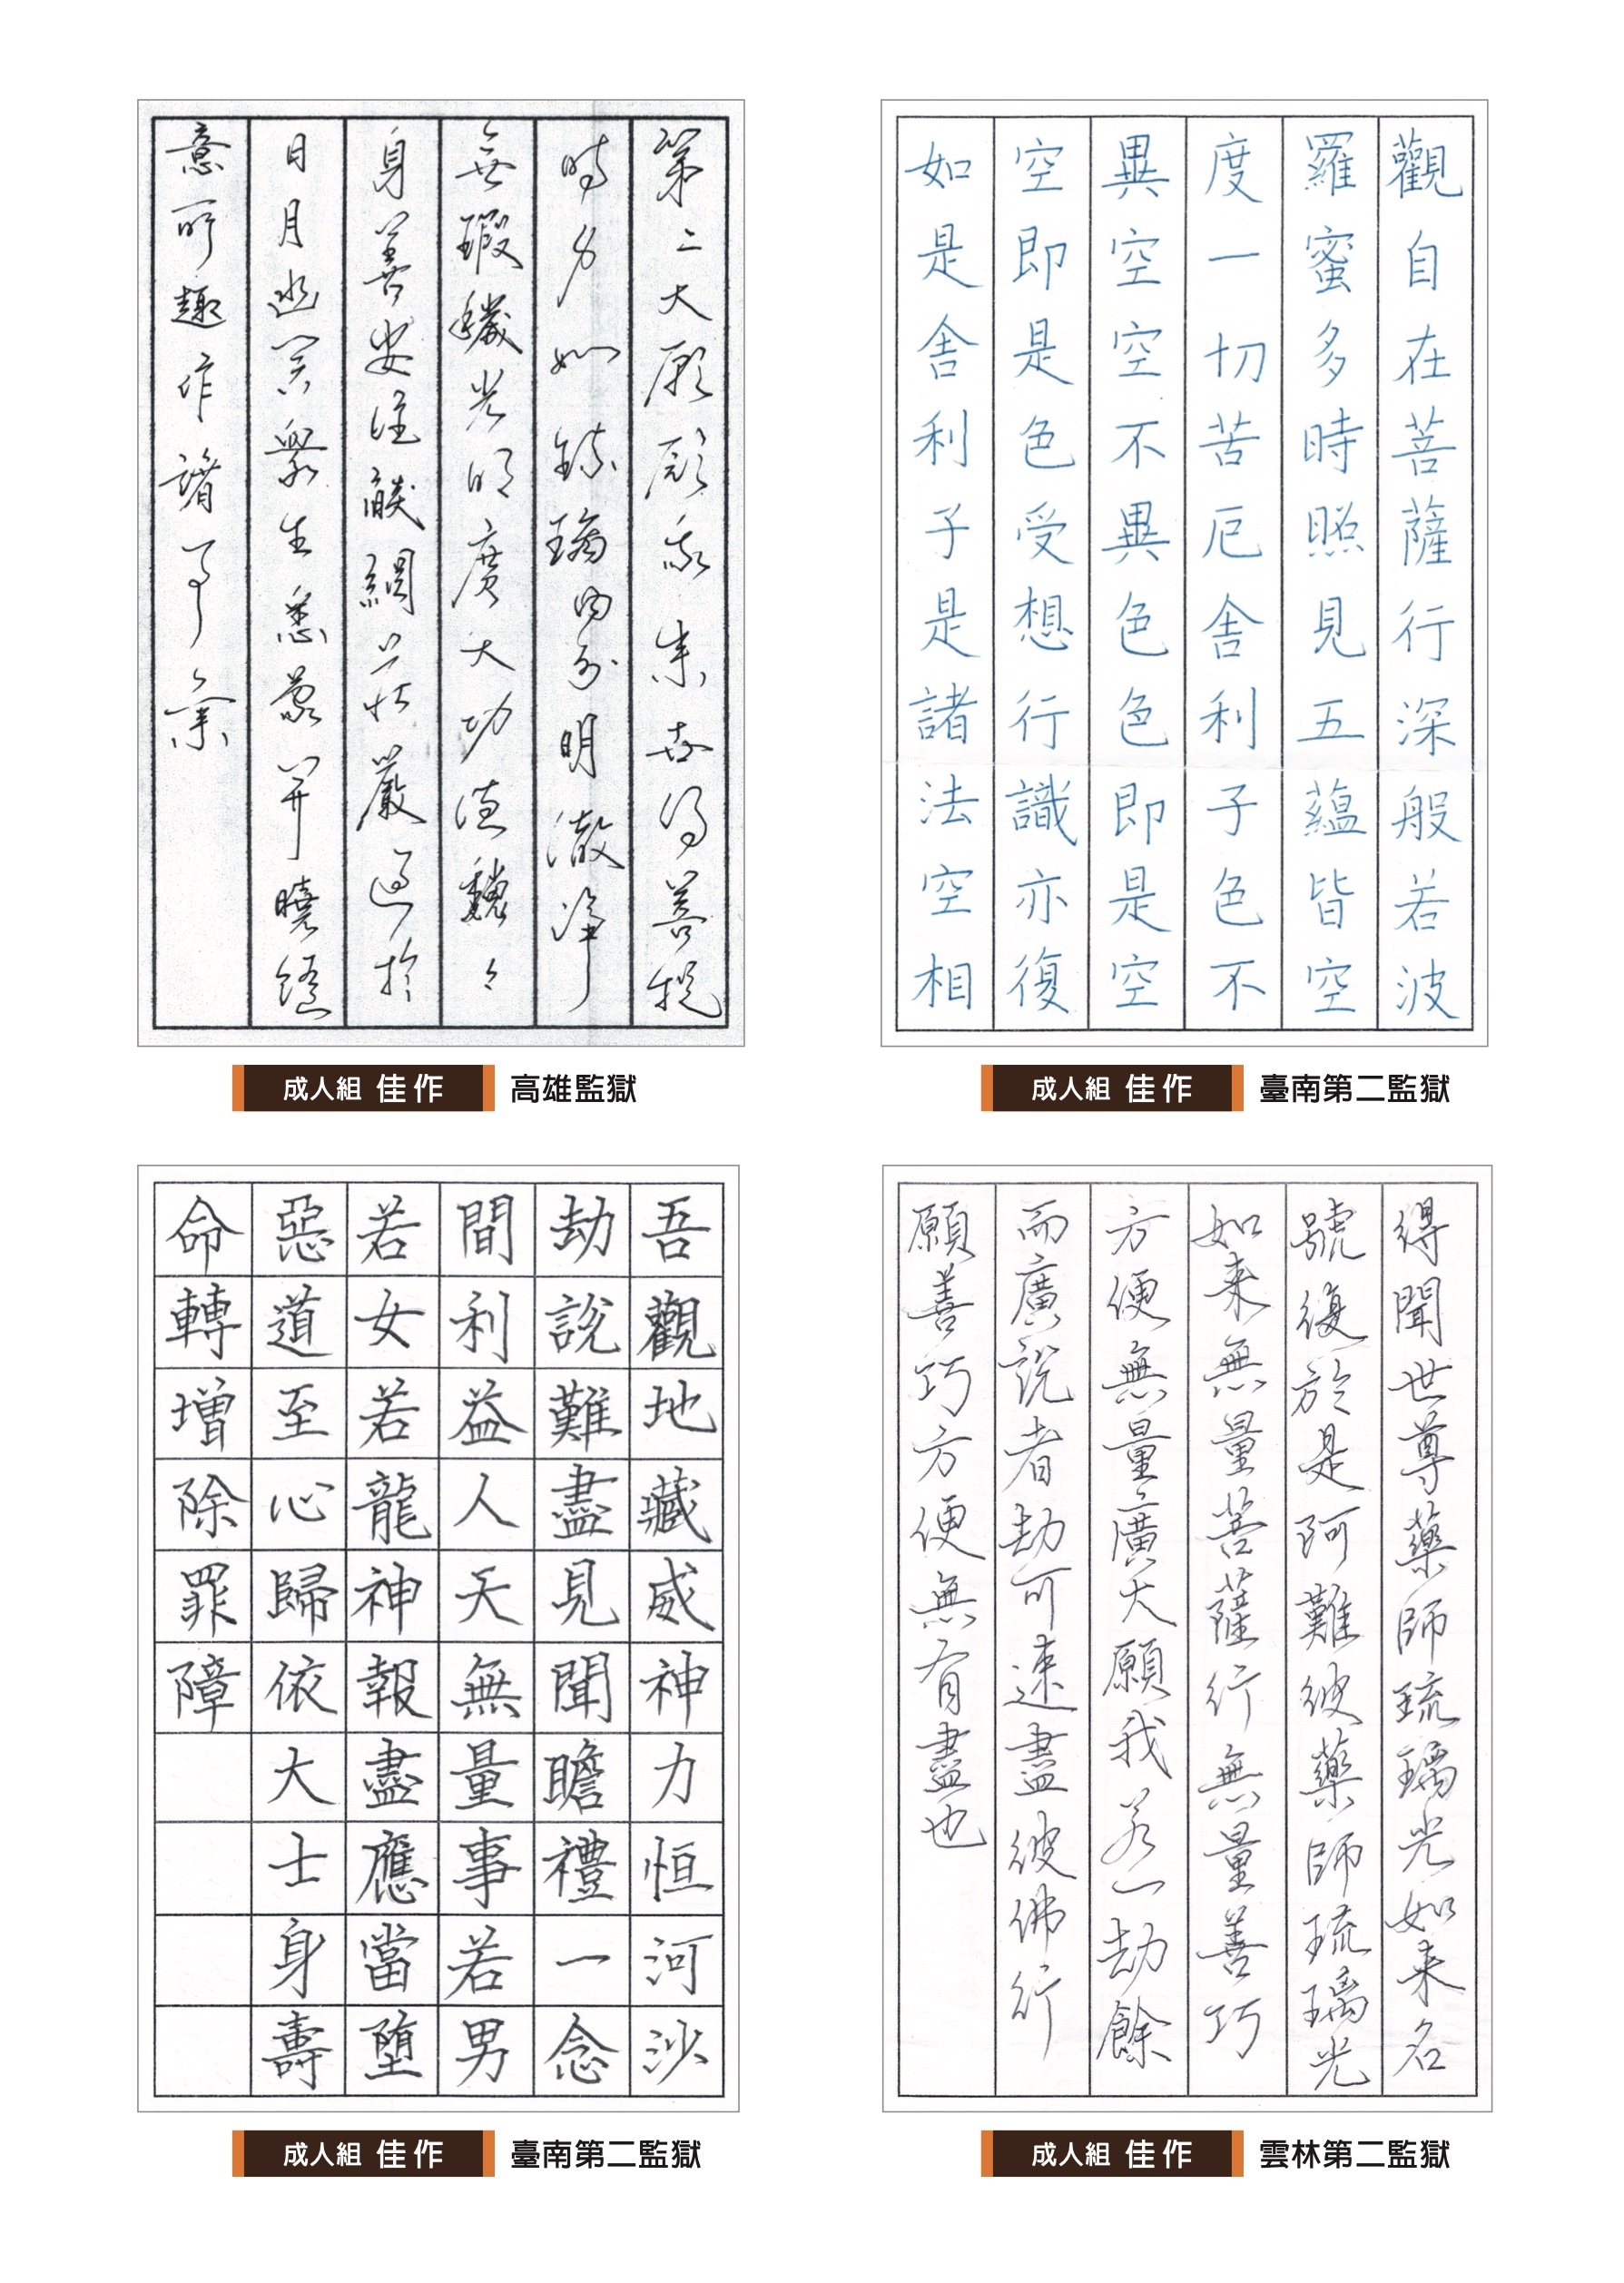 第二大願願我來世得菩提
時身如琉璃內外明澈淨
無瑕穢光明廣大功德巍々
身善安住燄網莊嚴過於
日月幽冥眾生悉蒙開曉隨
意所趣作諸事業
成人組 佳作 高雄監獄
觀自在菩薩行深般若波
羅蜜多時照見五蘊皆空
度一切苦厄舍利子色不
異空空不異色色即是空
空即是色受想行識亦復
如是舍利子是諸法空相
成人組 佳作 臺南第二監獄
吾觀地藏威神力恒河沙
劫說難盡見聞瞻禮一念
間利益人天無量事若男
若女若龍神報盡應當墮
惡道至心歸依大士身壽
命轉增除罪障
成人組 佳作 臺南第二監獄
得聞世尊藥師琉璃光如来名
號復於是阿難彼藥師琉璃光
如来無量菩薩行無量善巧
方便無量廣大願我若一劫餘
而廣說者劫可速盡彼佛行
願善巧方便無有盡也
成人組 佳作 雲林第二監獄